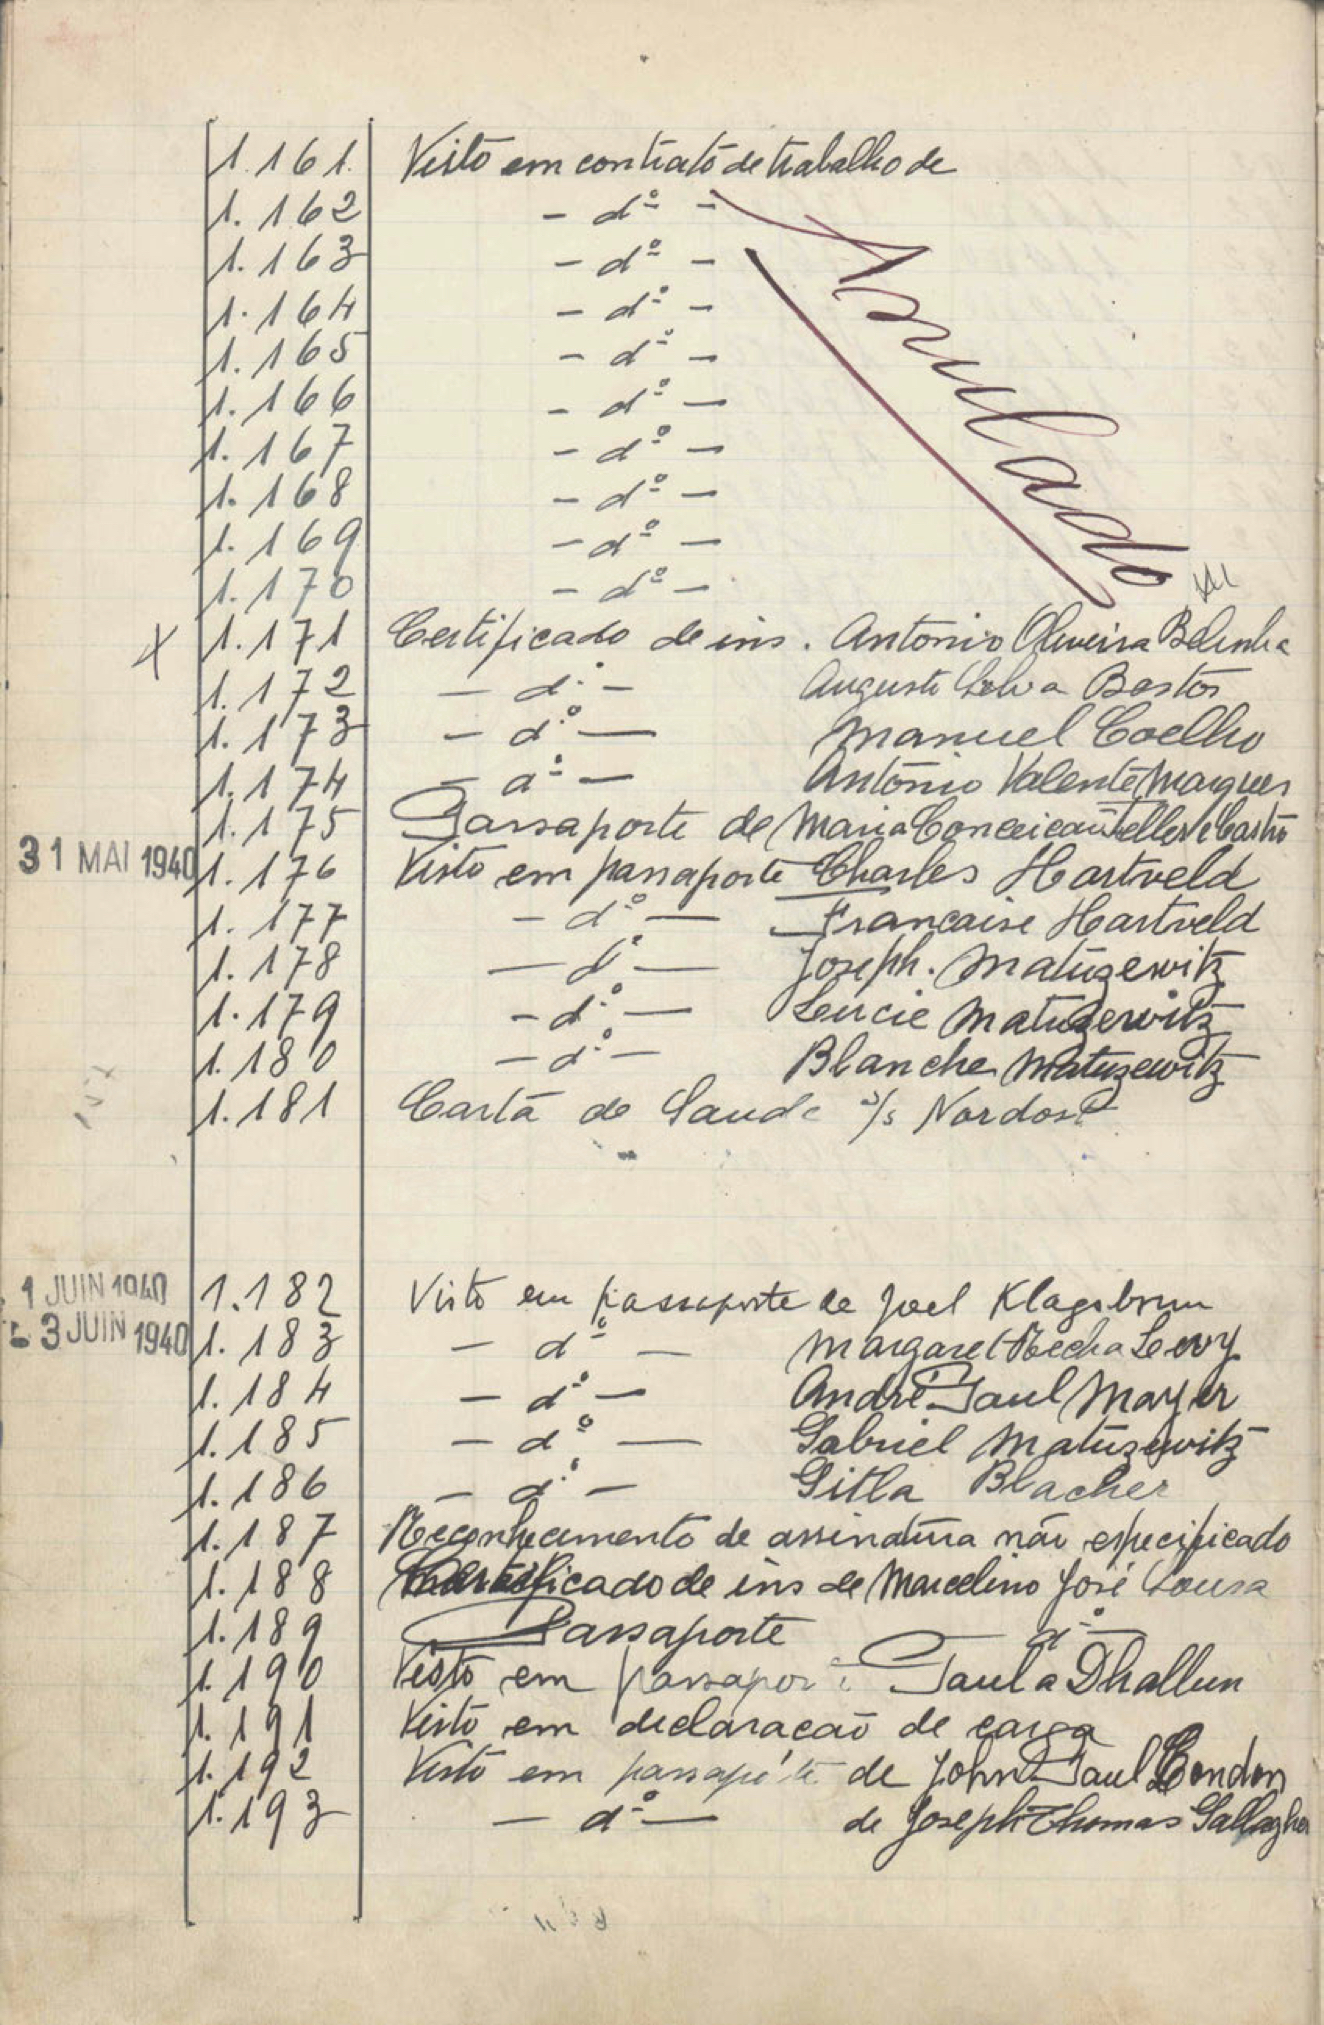 1.161. Visto em contrato de trabalho de
1.162 - dº -
1.163 - dº -
1.164 - dº -
1.165 - dº -
1.166 - dº -
1.167 - dº -
1.168 - dº -
1.169 - dº -
1.170 - dº -
Anulado
X 1.171 Certificado de ins. Antonio Oliveira
1.172 - dº - Augusto Silva Bastos
1.173 - dº - Manuel Coelho
1.174 - dº - António Valente Marques
1.175 Passaporte de Maria Conceicaõ Telles e Castro
31 MAI 1940 1.176 Visto em passaporte Charles Hartveld
1.177 - dº - Francaise Hartveld
1.178 - dº - Joseph. Matuzewitz
1.179 - dº - Lucie Matuzewitz
1.180 - dº - Blanche Matuzewitz
1.181 Carta de Saude s/s Nordost
1 JUIN 1940 1.182 Visto em passaporte de Joel Klagsbrun
3 JUIN 1940 1.183 - dº - Margaret Recha Levy
1.184 - dº - André Paul Mayer
1.185 - dº - Gabriel Matuzewitz
1.186 - dº - Gitla Blacher
1.187 Reconhecimento de assinatura não especificado
1.188 Certificado de ins de Marcelino José Sousa
1.189 Passaporte dº -
1.190 Visto em passaporte Paul a Dhallun
1.191 Visto em declaracaõ de carga
1.192 Visto em passaporte de John Paul London
1.193 - dº - de Joseph Thomas Gallagher